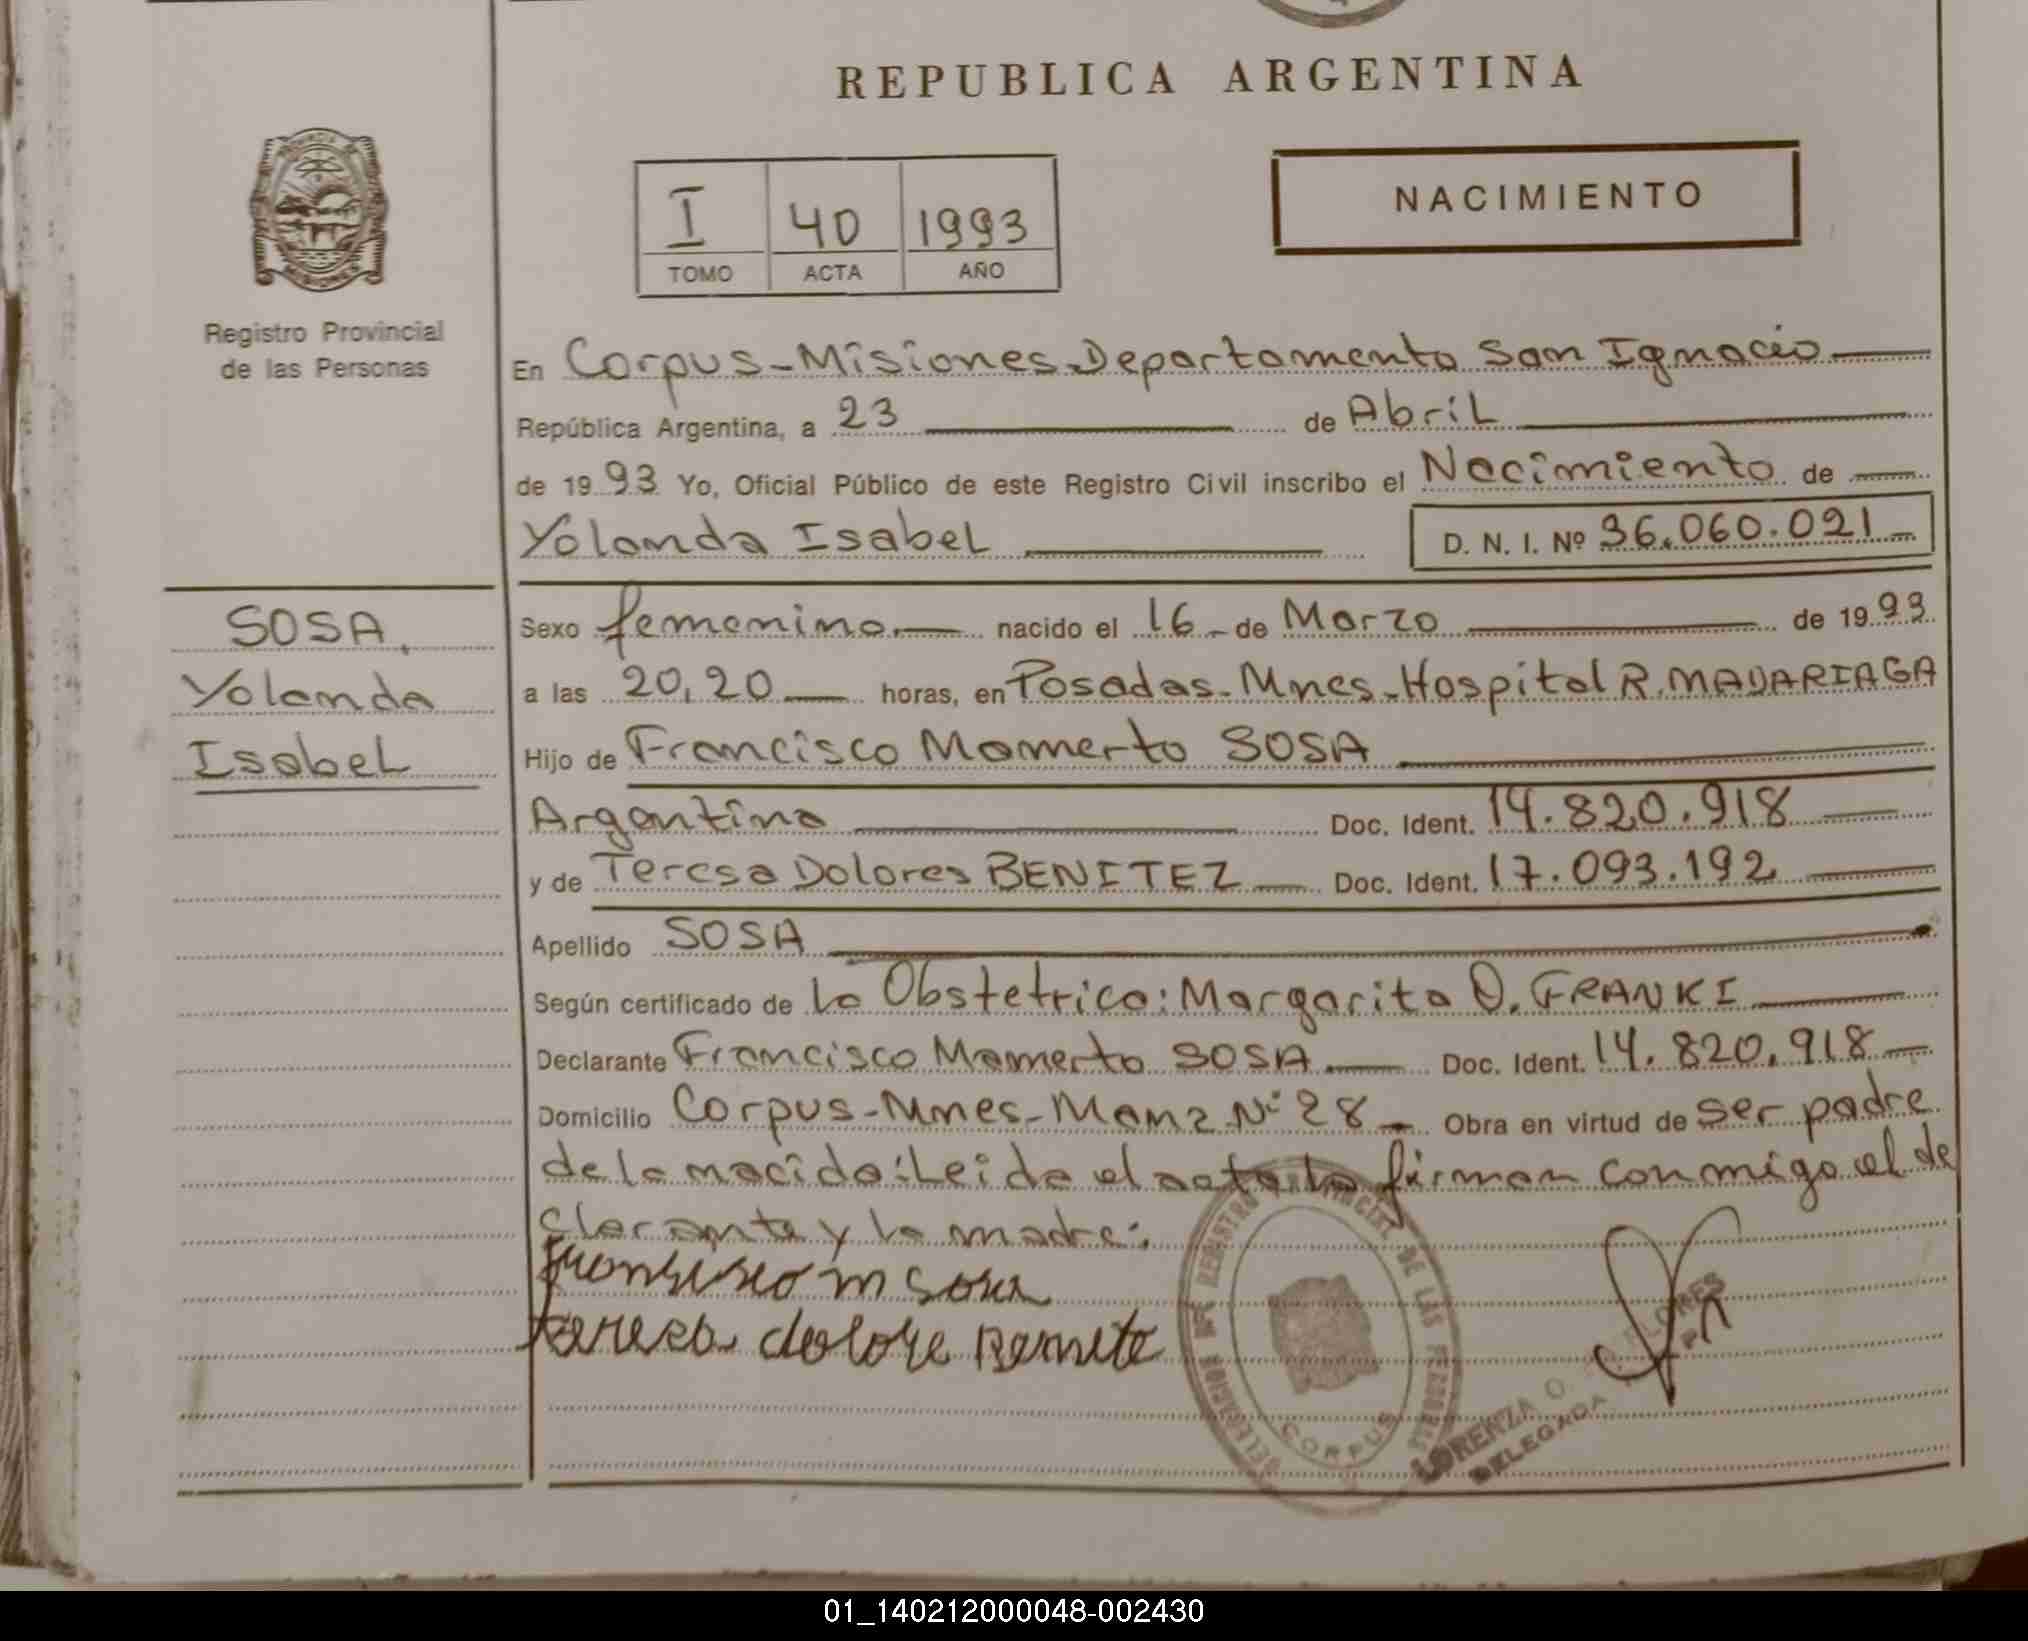 REPUBLICA ARGENTINA
NACIMIENTO
I 40 1993
TOMO ACTA AÑO
Registro Provincial
de las Personas
En Corpus-Misiones-Departamento San Ignacio
República Argentina, a 23 de Abril
de 1993 Yo, Oficial Público de este Registro Civil inscribo el Nacimiento de
Yolanda Isabel D. N. I. Nº 36.060.021
SOSA,
Yolanda
Isabel
Sexo femenino. nacido el 16 - de Marzo de 1993
a las 20,20 horas, en Posadas-Mnes-Hospital R. MADARIAGA
Hijo de Francisco Mamerto SOSA
Argentina Doc. Ident. 14.820.918
y de Teresa Dolores BENITEZ Doc. Ident. 17.093.192
Apellido SOSA
Según certificado de la Obstetrica: Margarita O. FRANKI
Declarante Francisco Mamerto SOSA Doc. Ident. 14.820.918
Domicilio Corpus-Mnes-Manz Nº 28 Obra en virtud de ser padre
de la nacida: Leida el acta la firman conmigo el de
clarante y la madre:
m Sosa
teresa dolore
DELEGACION REGISTRO PROVINCIAL DE LAS PERSONAS
CORPUS
LORENZA O. FLORES
DELEGADA
01_140212000048-002430